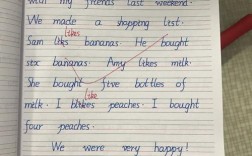 with my friends last weekend.
We made a shopping list.
likes
Sam liks bananas. He bought
six bananas. Amy likes milk.
She bought five bottles of
like
milk. I blikes peaches. I bought
four peaches.
We were very happy!